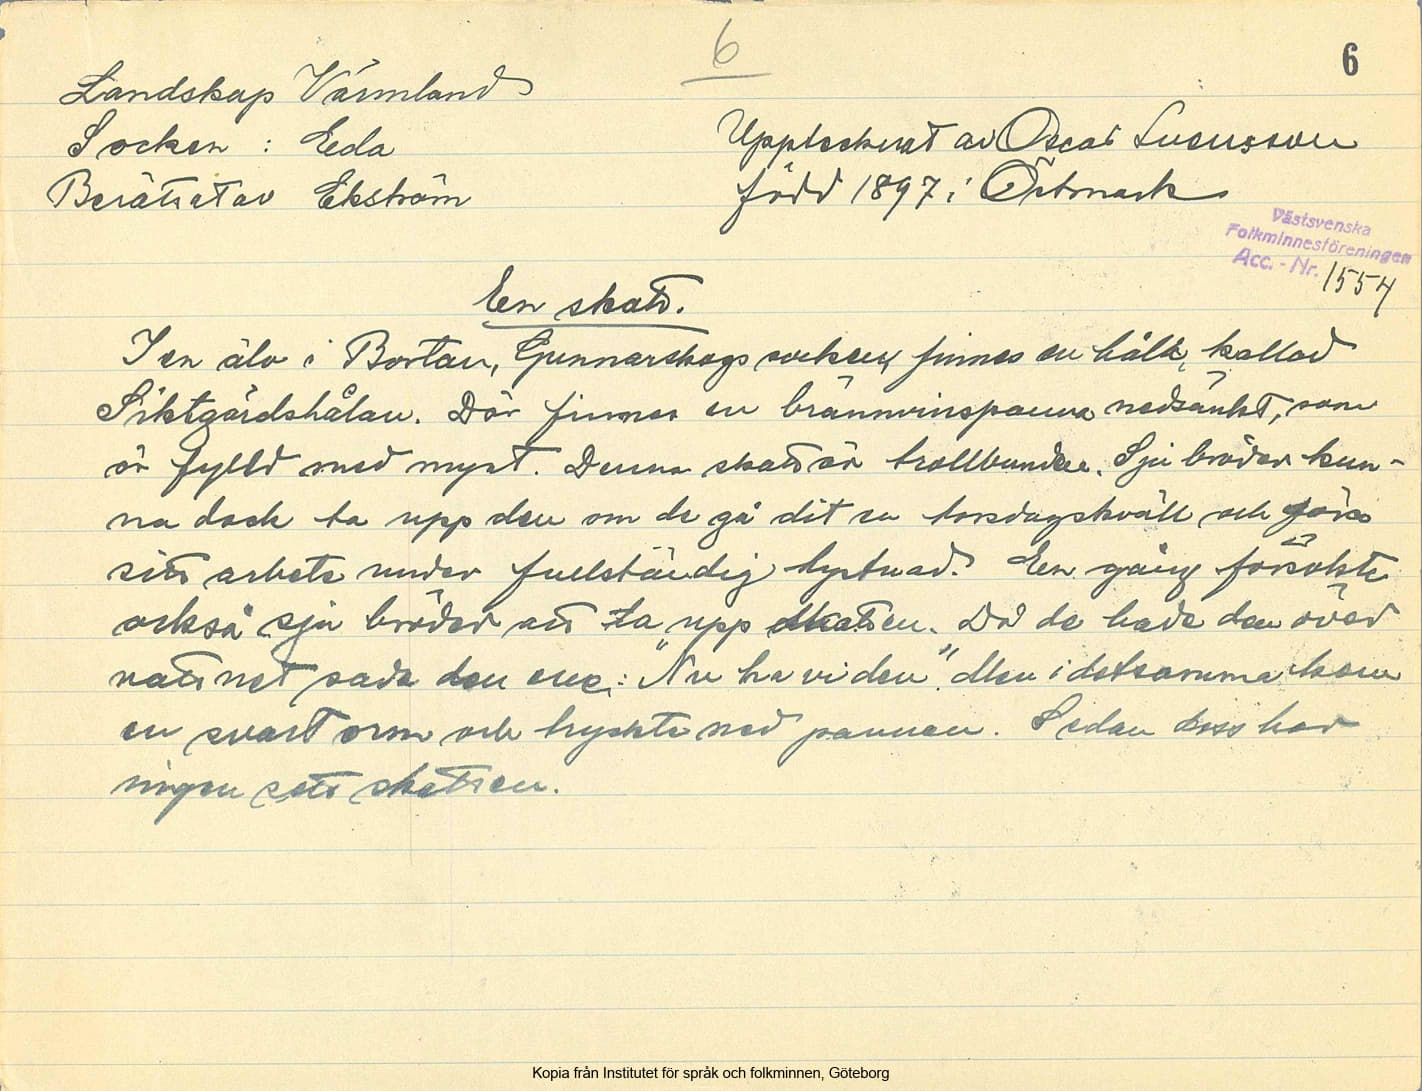 6
6
Landskap Värmland
Socken : Eda
Berättat av Ekström
Upptecknat av Oscar Svensson
född 1897 i Östmark
Västsvenska
Folkminnesföreningen
Acc. - Nr. 1554
En skatt.
I en älv i Bortan, Gunnarskogs socken, finnes en håla, kallad
Siktgårdshålan. Där finnes en brännvinspanna nedsänkt, som
är fylld med mynt. Denna skatt är trollbunden. Sju bröder kun-
na dock ta upp den om de gå dit en torsdagskväll och göra
sitt arbete under fullständig tystnad. En gång försökte
också sju bröder att ta upp skatten. Då de hade den över
vattnet sade den ene: "Nu ha vi den". Men i detsamma kom
en svart orm och tryckte ned pannan. Sedan dess har
ingen sett skatten.
Kopia från Institutet för språk och folkminnen, Göteborg